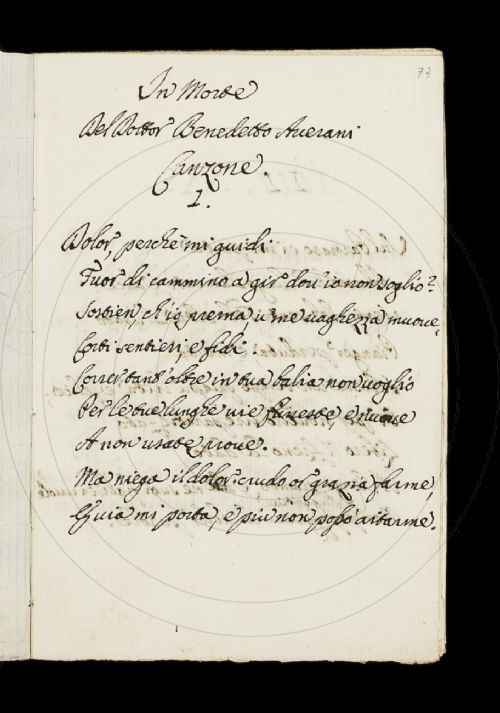 73
In Morte
Del Dottor Benedetto Auerani
Canzone.
1.
Dolor, perche mi guidi
Fuor di cammino a gir dou'io non soglio?
Sostien, ch'io prema, u' me uaghezza muoue,
Corti sentieri, e fidi
Correr tant'oltre in tua balia non uoglio
Per le tue lunghe uie funeste, e nuoue
A non usate proue.
Ma niega il dolor crudo or grazia farme,
E uia mi porta, e piu non posso aitarme.